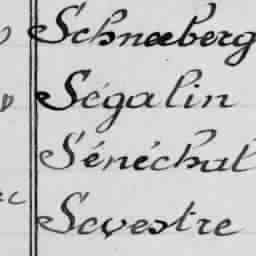 Schneeberg
Ségalin
Sénéchal
Sevestre